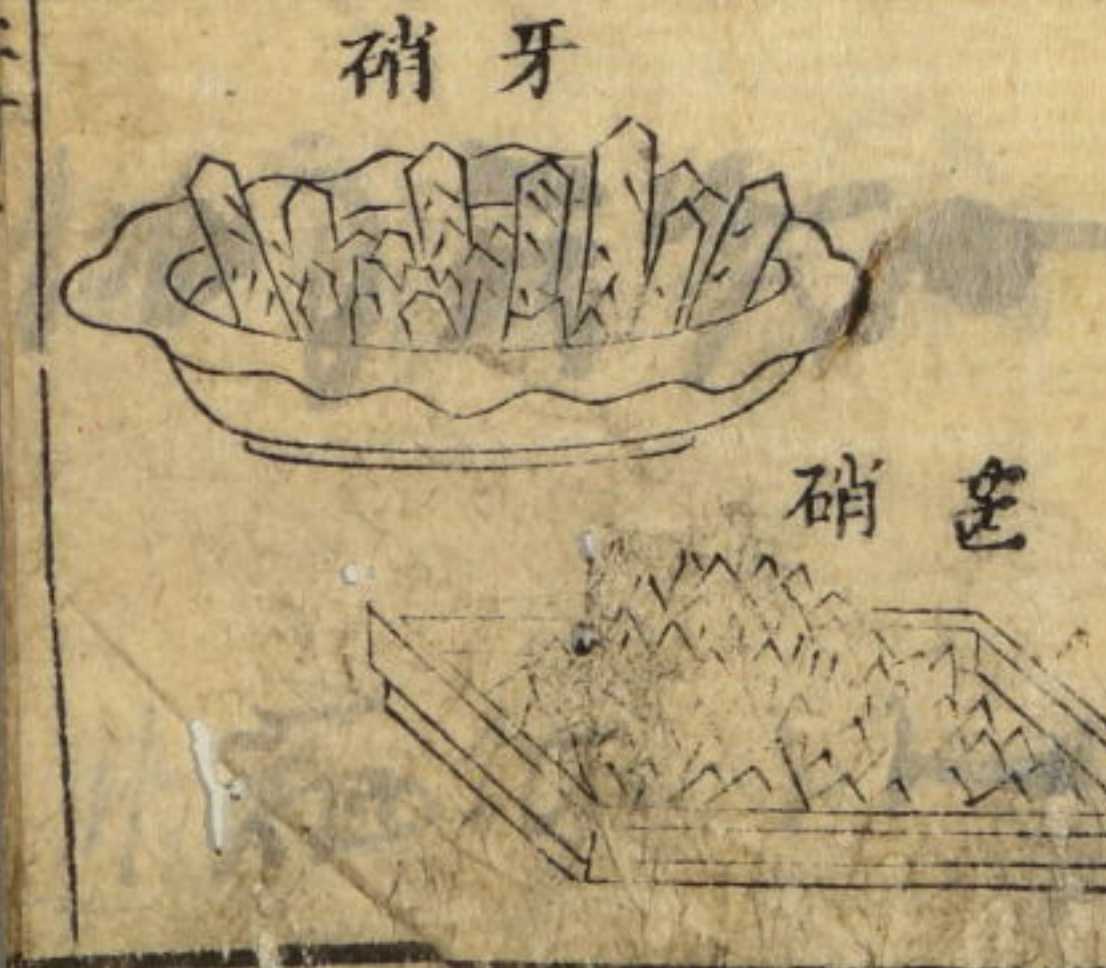 牙硝
芒硝